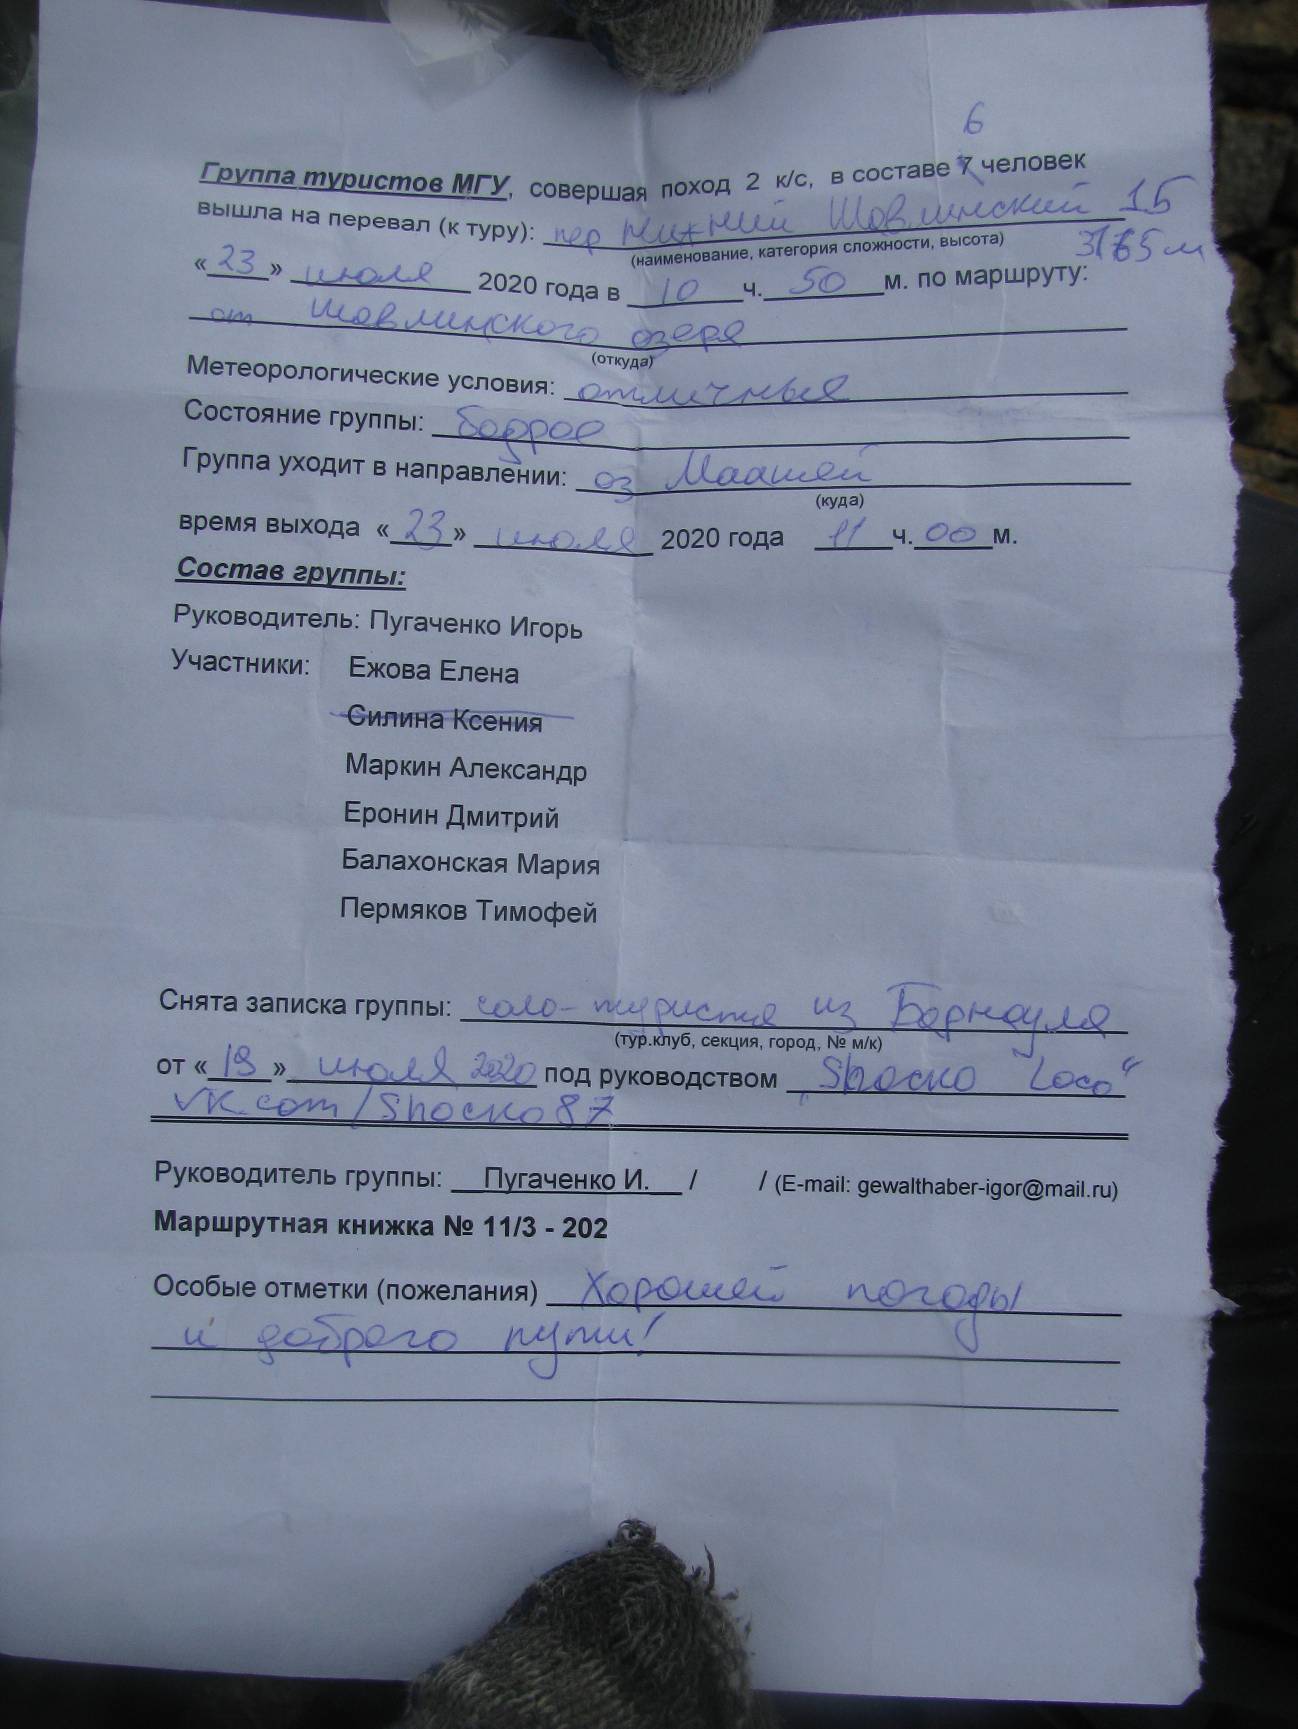 6
Группа туристов МГУ, совершая поход 2 к/с, в составе 7 человек
вышла на перевал (к туру): пер Нижний Шавлинский 1Б
(наименование, категория сложности, высота) 3165м
«23» июля 2020 года в 10 ч. 50 м. по маршруту:
от Шавлинского озера
(откуда)
Метеорологические условия: отличные
Состояние группы: бодрое
Группа уходит в направлении: оз Маашей
(куда)
время выхода «23» июля 2020 года 11 ч. 00 м.
Состав группы:
Руководитель: Пугаченко Игорь
Участники: Ежова Елена
Силина Ксения
Маркин Александр
Еронин Дмитрий
Балахонская Мария
Пермяков Тимофей
Снята записка группы: соло-туриста из Барнаула
(тур.клуб, секция, город, № м/к)
от «19» июля 2020 под руководством Shocko "Loco"
vk.com/Shocko87
Руководитель группы: Пугаченко И. / / (E-mail: gewalthaber-igor@mail.ru)
Маршрутная книжка № 11/3 - 202
Особые отметки (пожелания) Хорошей погоды
и доброго пути!